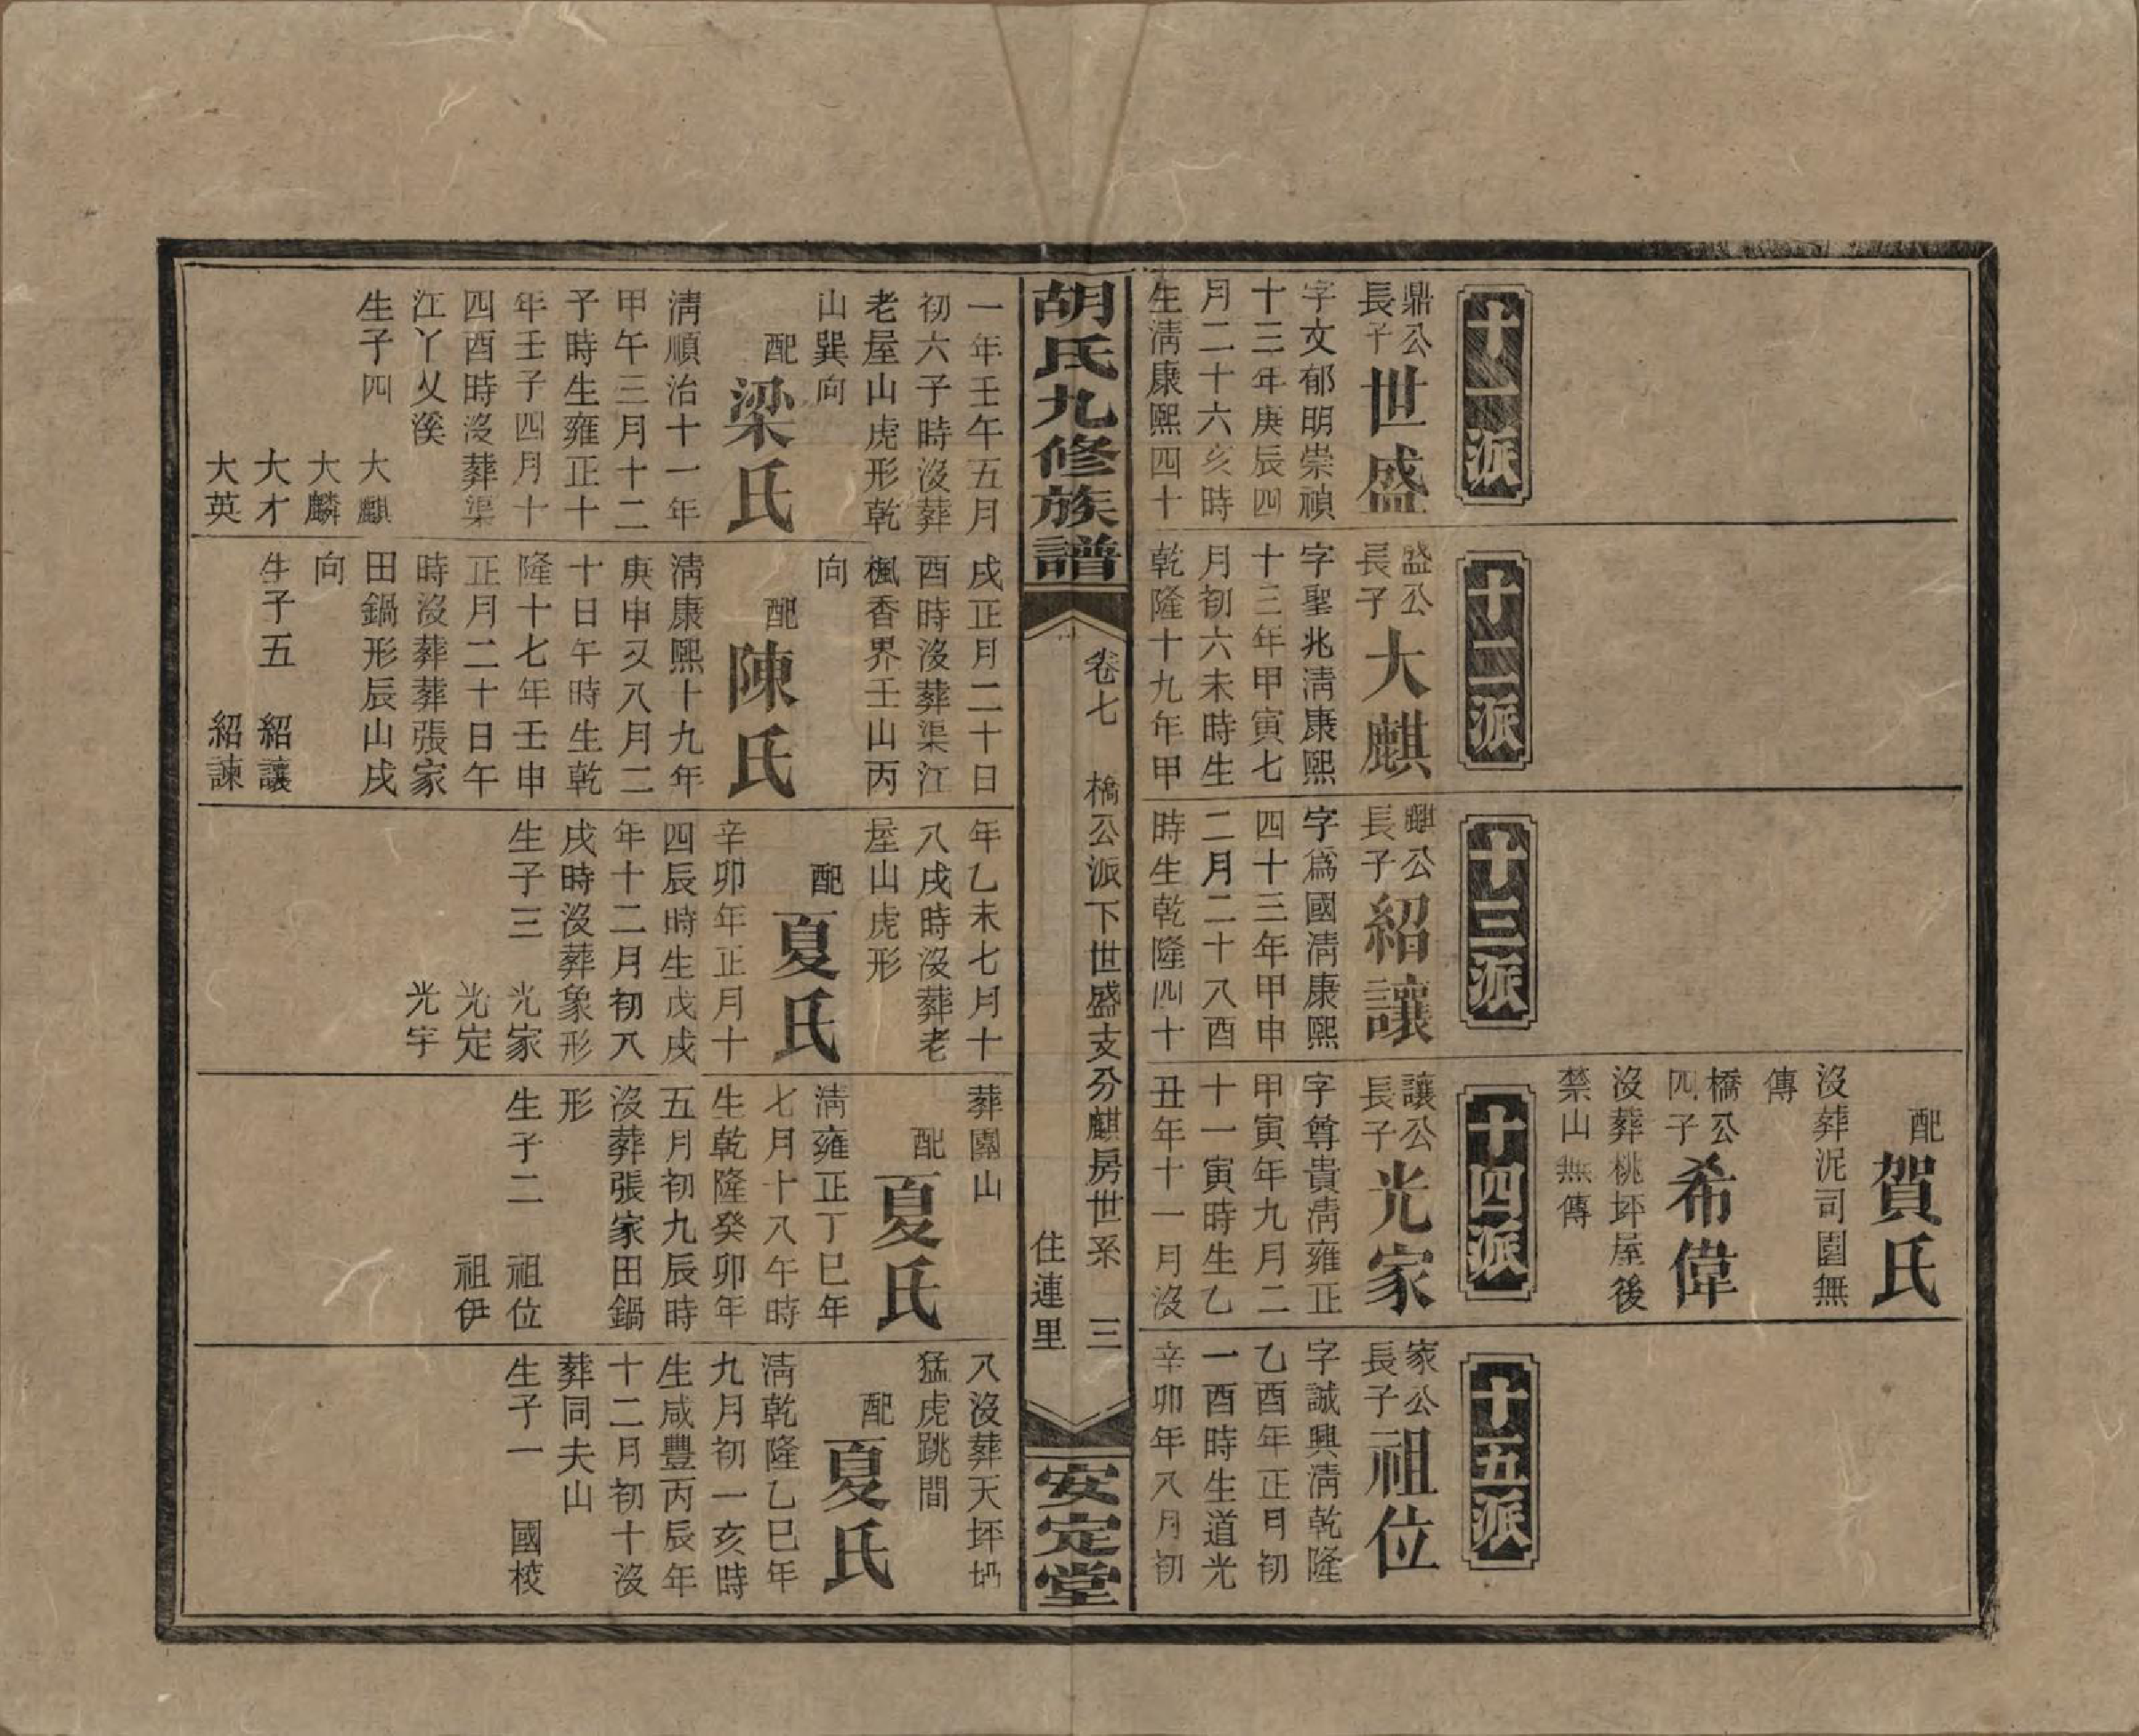 十一派
鼎公
長子
世盛
字文郁明崇禎
十三年庚辰四
月二十六亥時
生淸康熙四十
一年壬午五月
初六子時沒葬
老屋山虎形乾
山巽向
配
梁氏
淸順治十一年
甲午三月十二
子時生雍正十
年壬子四月十
四酉時沒葬渠
江丫乂溪
生子四
大麒
大麟
大才
大英
十二派
盛公
長子
大麒
字聖兆淸康熙
十三年甲寅七
月初六未時生
乾隆十九年甲
戌正月二十日
酉時沒葬渠江
楓香界壬山丙
向
配
陳氏
淸康熙十九年
庚申又八月二
十日午時生乾
隆十七年壬申
正月二十日午
時沒葬葬張家
田鍋形辰山戌
向
生子五
紹讓
紹諫
十三派
麒公
長子
紹讓
字爲國淸康熙
四十三年甲申
二月二十八酉
時生乾隆四十
年乙未七月十
八戌時沒葬老
屋山虎形
配
夏氏
辛卯年正月十
四辰時生戊戌
年十二月初八
戌時沒葬象形
生子三
光家
光定
光宇
配
賀氏
沒葬泥司園無
傳
橋公
四子
希偉
沒葬桃坏屋後
禁山無傳
十四派
讓公
長子
光家
字尊貴淸雍正
甲寅年九月二
十一寅時生乙
丑年十一月沒
葬園山
配
夏氏
淸雍正丁巳年
七月十八午時
生乾隆癸卯年
五月初九辰時
沒葬張家田鍋
形
生子二
祖位
祖伊
十五派
家公
長子
祖位
字誠興淸乾隆
乙酉年正月初
一酉時生道光
辛卯年八月初
八沒葬天坏垇
猛虎跳間
配
夏氏
淸乾隆乙巳年
九月初一亥時
生咸豐丙辰年
十二月初十沒
葬同夫山
生子一
國校
胡氏九修族譜
卷七
橋公派下世盛支分麒房世系
三
住連里
安定堂